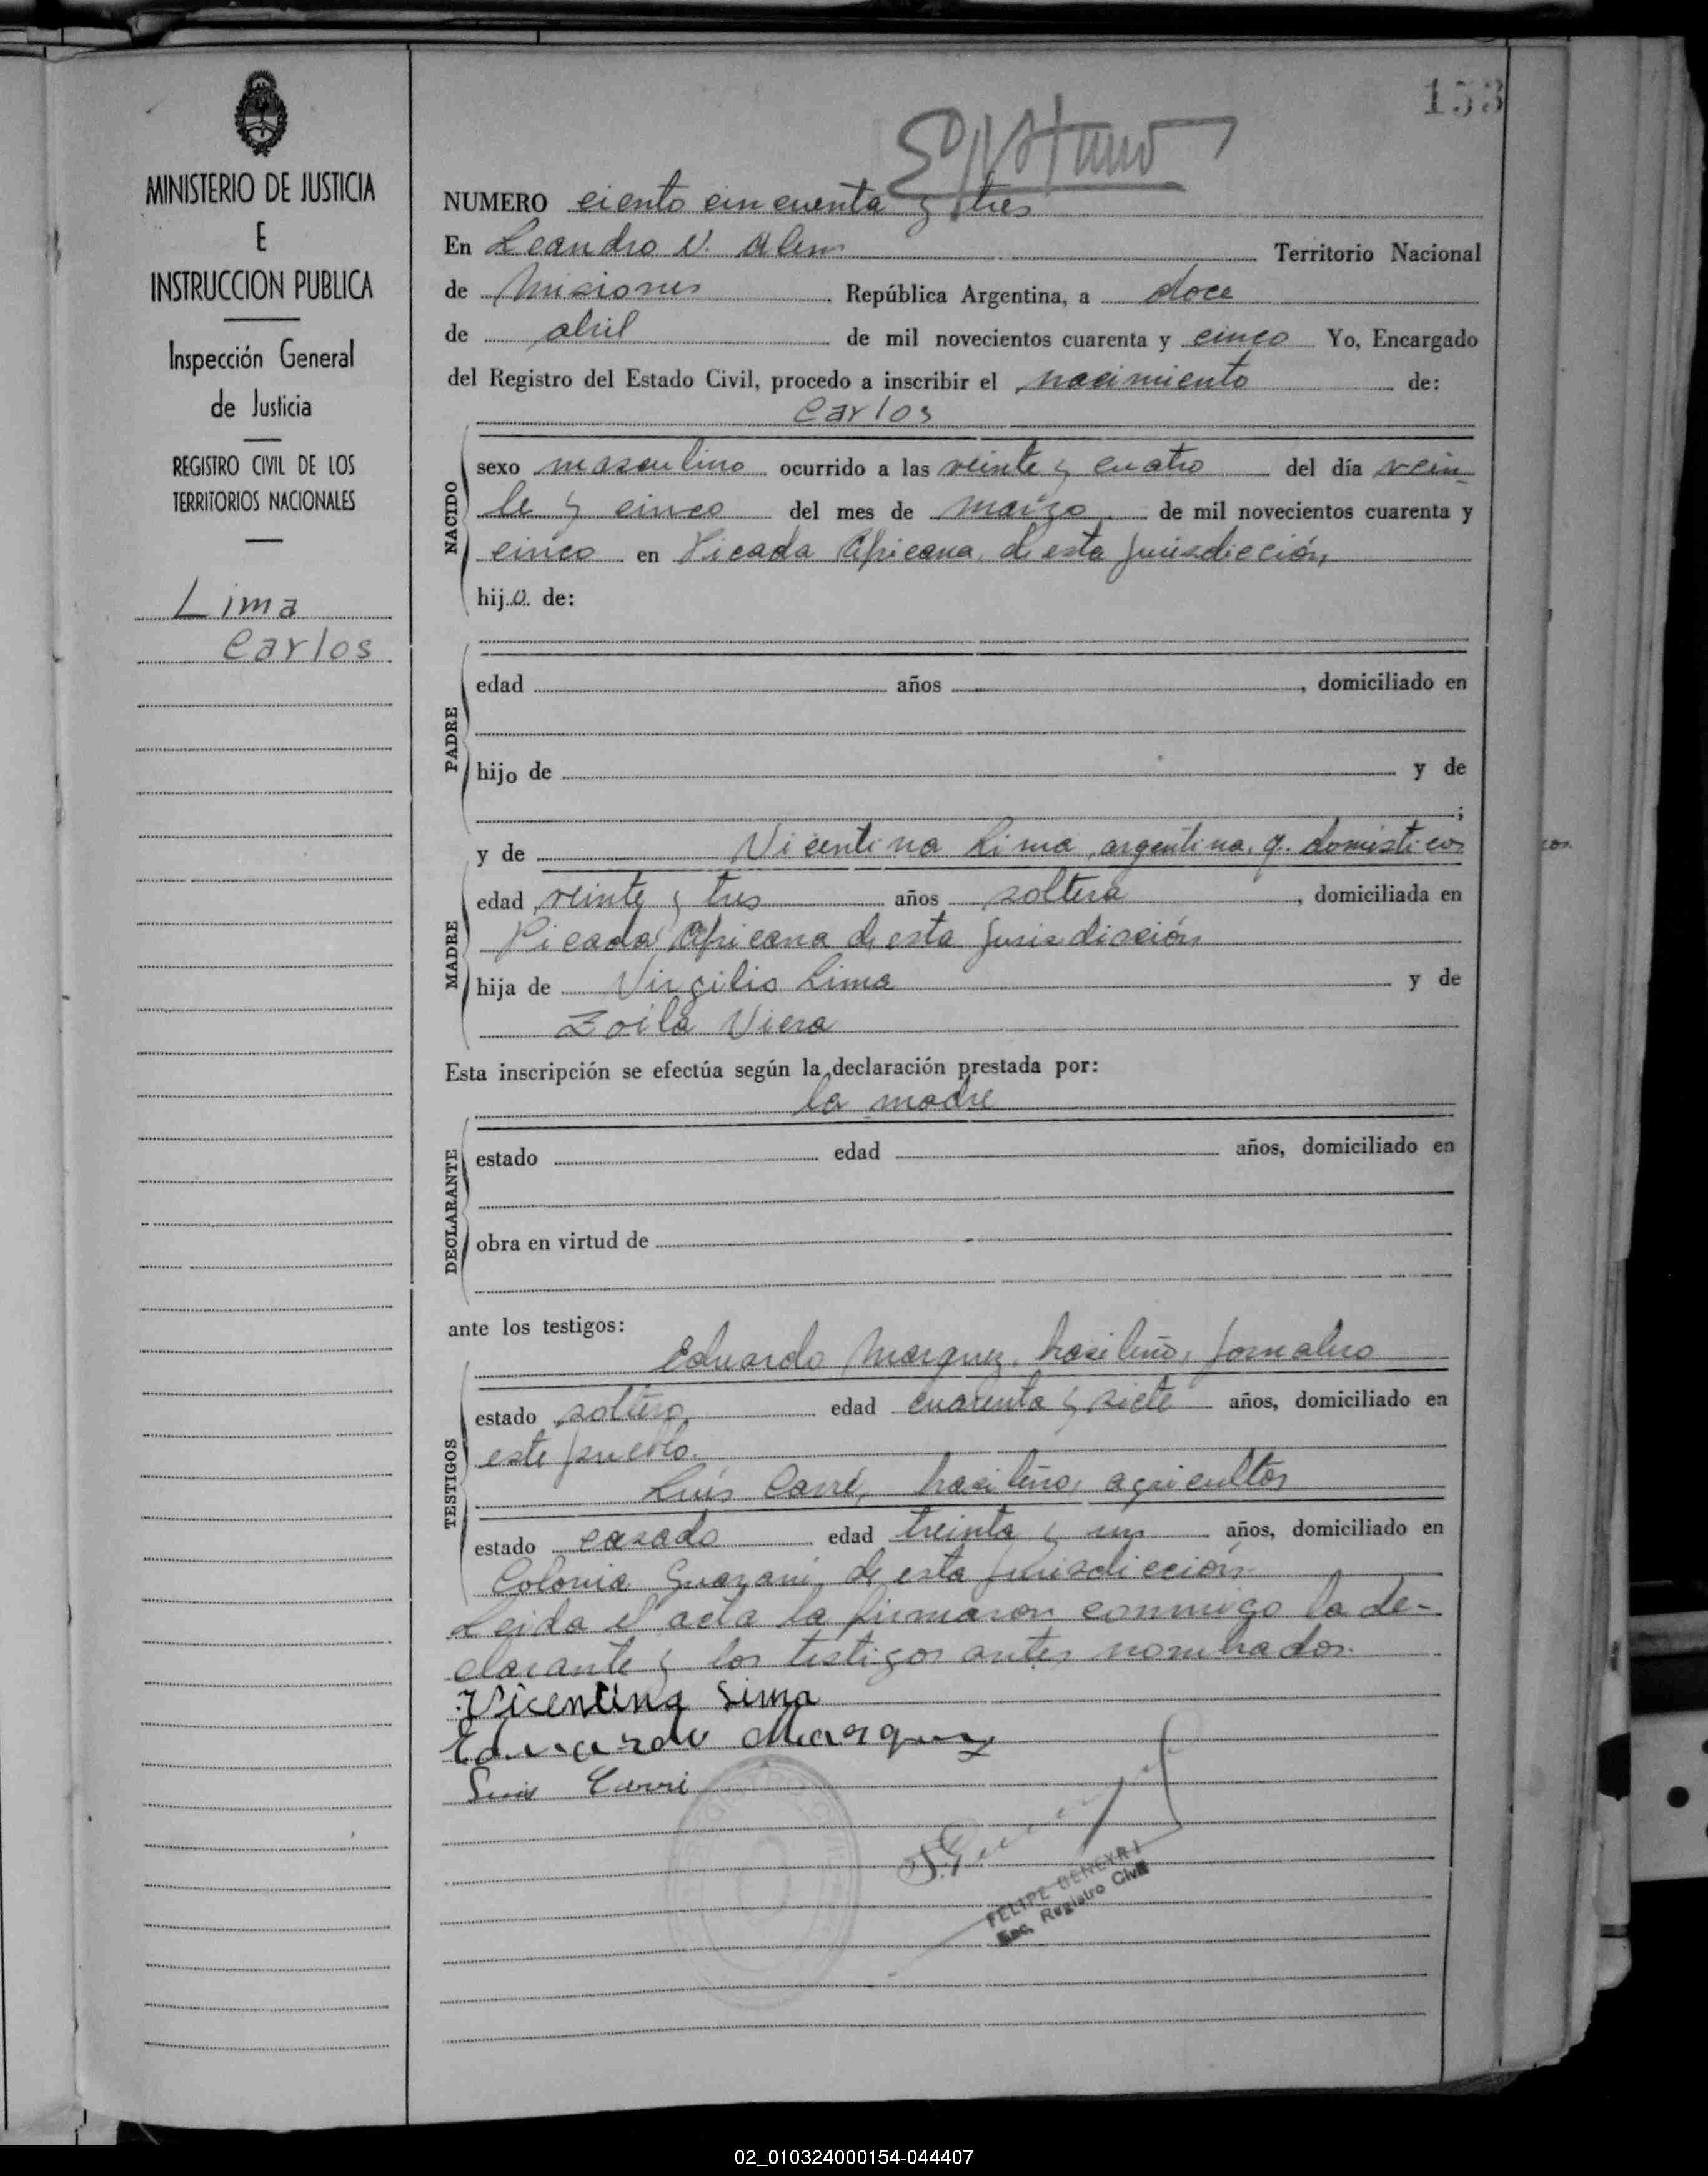 153
MINISTERIO DE JUSTICIA
E
INSTRUCCION PUBLICA
Inspección General
de Justicia
REGISTRO CIVIL DE LOS
TERRITORIOS NACIONALES
Lima
Carlos
NUMERO ciento cincuenta y tres
En Leandro N. Alem Territorio Nacional
de Misiones República Argentina, a doce
de abril de mil novecientos cuarenta y cinco Yo, Encargado
del Registro del Estado Civil, procedo a inscribir el nacimiento de:
Carlos
NACIDO
sexo masculino ocurrido a las veinte y cuatro del día vein-
te y cinco del mes de marzo de mil novecientos cuarenta y
cinco en Picada Africana, de esta jurisdicción,
hijo de:
PADRE
edad años , domiciliado en
hijo de y de
;
y de Vicentina Lima, argentina, q. domesticos
MADRE
edad veinte y tres años soltera , domiciliada en
Picada Africana de esta jurisdicción
hija de Virgilio Lima y de
Zoila Viera
Esta inscripción se efectúa según la declaración prestada por:
la madre
DECLARANTE
estado edad años, domiciliado en
obra en virtud de
ante los testigos:
Eduardo Marquez, brasileño, jornalero
TESTIGOS
estado soltero, edad cuarenta y siete años, domiciliado en
este pueblo.
Luis Carré, brasileño, agricultor
estado casado edad treinta y un años, domiciliado en
Colonia Guarani, de esta jurisdicción.
Leida el acta la firmaron conmigo la de-
clarante y los testigos antes nombrados.
Vicentina Lima
Eduardo Marquez
Luis Carri
FELIPE GENEYRI
Enc. Registro Civil
02_010324000154-044407